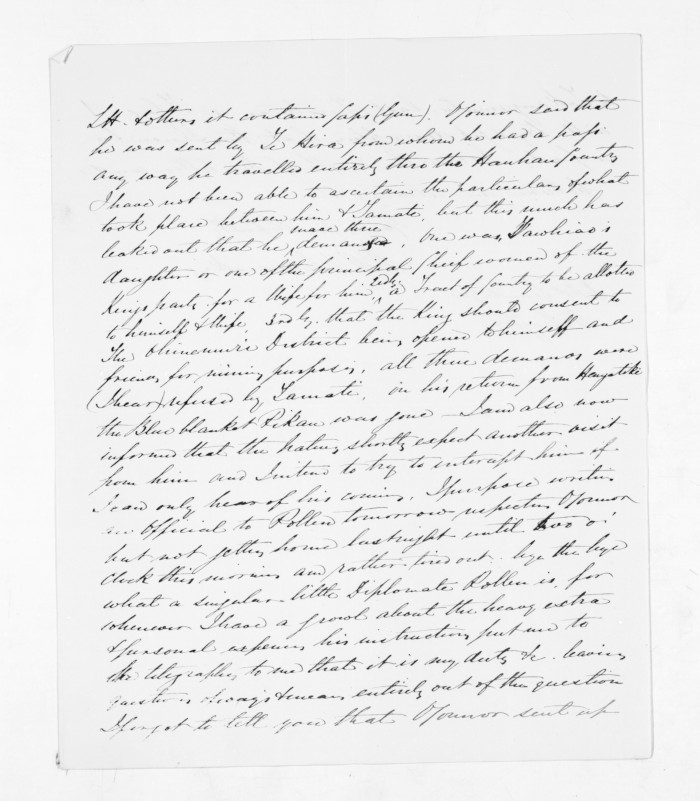 LH. & others it contained Caps (Gun). O'Connor said that
he was sent by Te Hira from whom he had a pass
any way he travelled entirely thro the Hauhau Country
I have not been able to ascertain the particulars of what
took place between him & Tamati, but this much has
leaked out that he made three demands, One was Tawhiao's
daughter or one of the principal Chief women of the
Kings party for a Wife for him, 2ndly a Tract of Country to be allotted
to himself & Wife, 3rdly that the King should consent to
The Ohinemuri District being opened to himself and
friends for mining purposes, all these demands were
(I hear) refused by Tamati, on his return from
the Blue blanket Pikau was gone — I am also now
informed that the natives shortly expect another visit
from him and I intend to try to intercept him if
I can only hear of his coming, I purpose writing
an Official to Pollen tomorrow respecting O'Connor
but not getting home last night until two o'
clock this morning am rather tired out. bye the bye
what a singular little Diplomate Pollen is, for
whenever I have a growl about the heavy extra
& personal expenses his instructions put me to
he telegraphs to me that it is my duty &c. leaving
the question of ways & means entirely out of the question
I forgot to tell you that O'Connor sent up